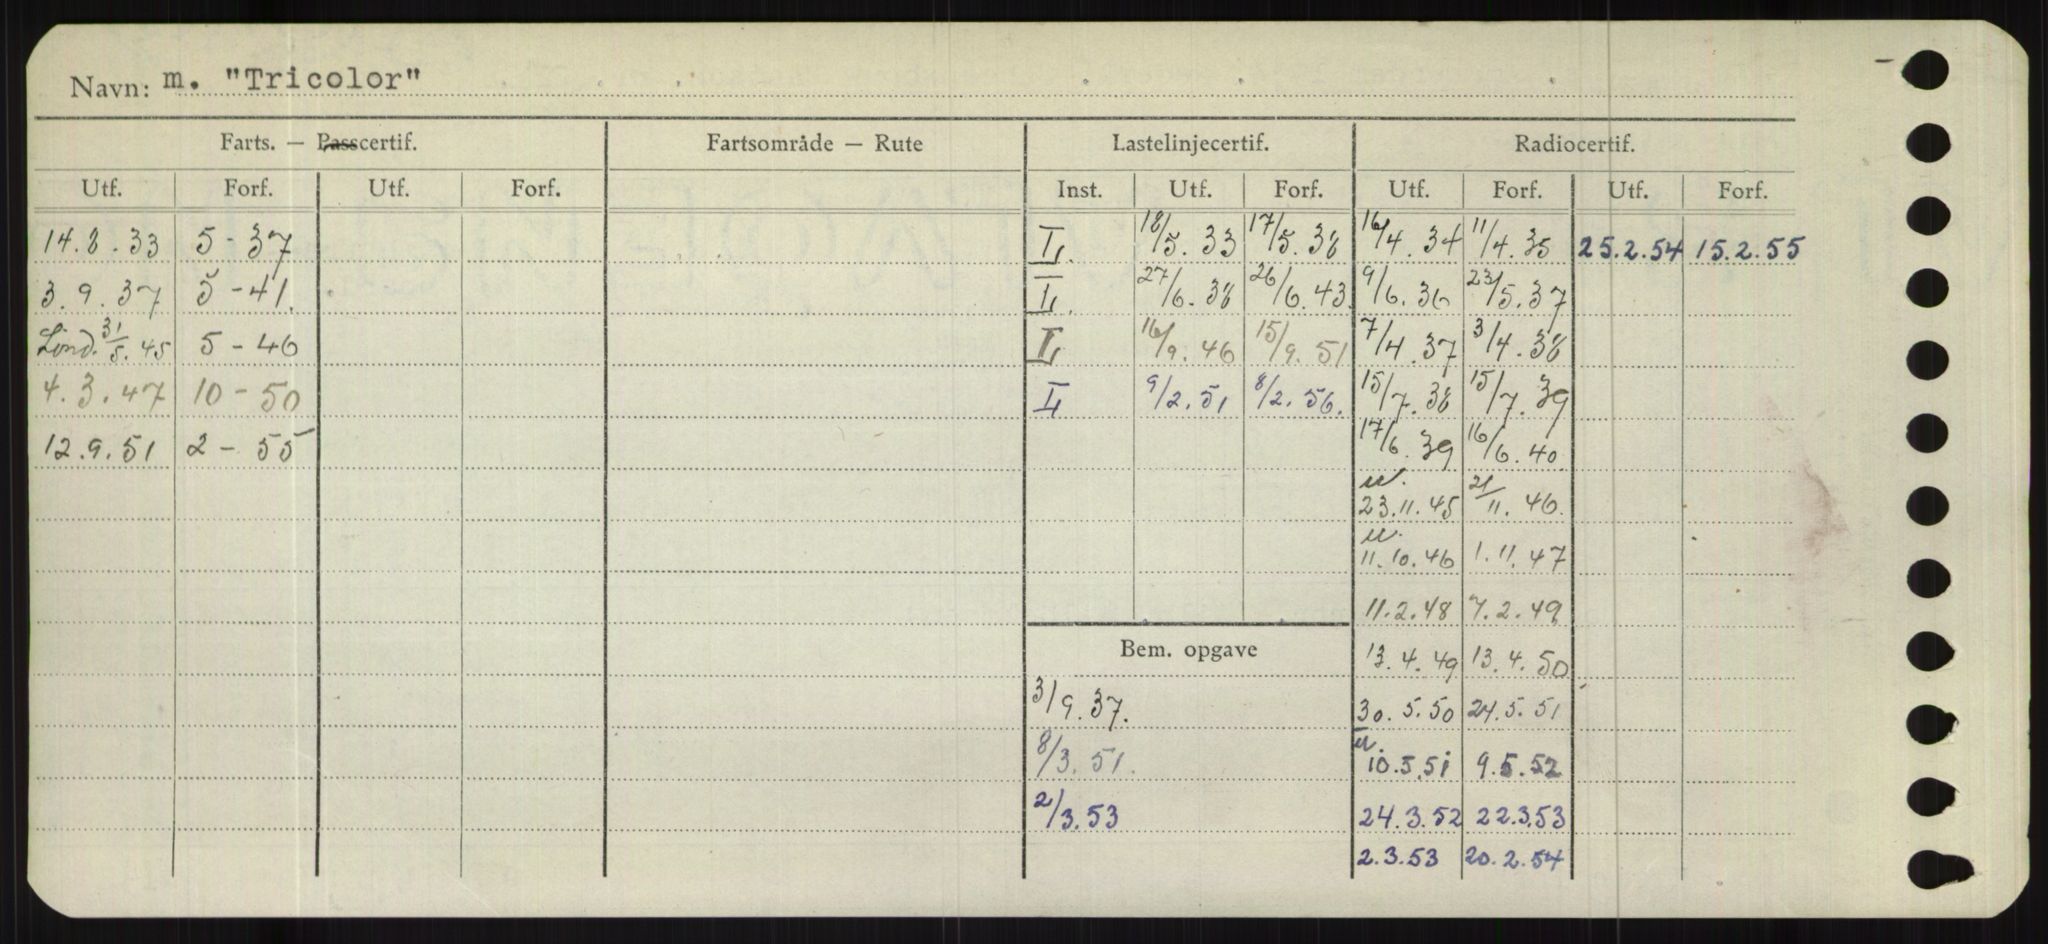 Navn: m. "Tricolor"
Farts. — Passcertif. Fartsområde — Rute Lastelinjecertif. Radiocertif.
Utf. Forf. Utf. Forf. Inst. Utf. Forf. Utf. Forf. Utf. Forf.
14.8.33 5-37 L. 18/5.33 17/5.38 16/4.34 11/4.35 25.2.54 15.2.55
3.9.37 5-41. L. 27/6.38 26/6.43. 9/6.36 23/5.37
Lond. 31/5.45 5-46 L 16/9.46 15/9.51 7/4.37 3/4.38
4.3.47 10-50 L 9/2.51 8/2.56. 15/7.38 15/7.39
12.9.51 2-55 17/6.39 16/6.40.
u.
23.11.45 21/11.46.
u.
11.10.46 1.11.47
11.2.48 7.2.49
Bem. opgave 13.4.49 13.4.50
3/9.37. 30.5.50 24.5.51
u.
8/3.51. 10.5.51 9.5.52
2/3.53 24.3.52 22.3.53
2.3.53 20.2.54